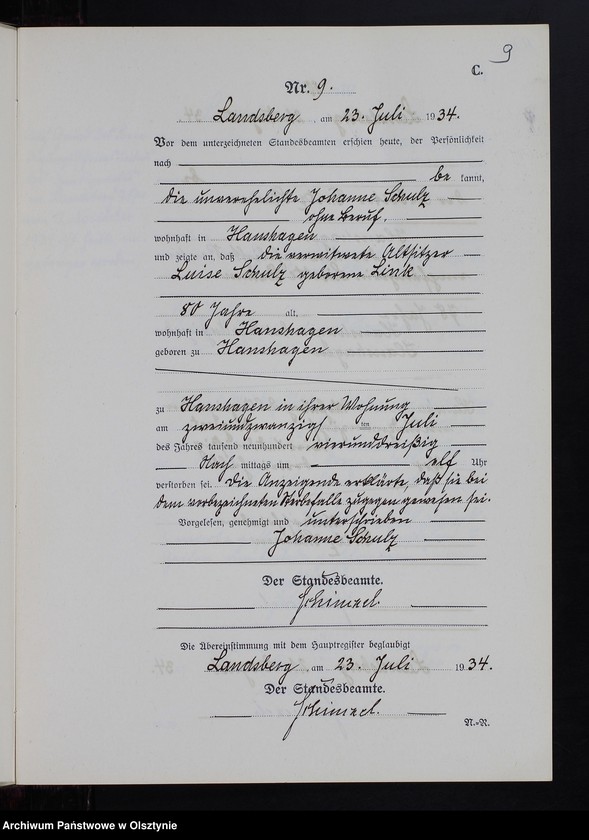 9
C.
Nr. 9.
Landsberg, am 23. Juli 1934.
Vor dem unterzeichneten Standesbeamten erschien heute, der Persönlichkeit
nach
be kannt,
die unverehelichte Johanne Schulz
ohne Beruf.
wohnhaft in Hanshagen
und zeigte an, daß die verwitwete Altsitzer
Luise Schulz geborene Link
80 Jahre alt,
wohnhaft in Hanshagen
geboren zu Hanshagen
zu Hanshagen in ihrer Wohnung
am zweiundzwanzigs ten Juli
des Jahres tausend neunhundert vierunddreißig
Nach mittags um elf Uhr
verstorben sei. Die Anzeigende erklärte, daß sie bei
dem vorbezeichneten Sterbefalle zugegen gewesen sei.
Vorgelesen, genehmigt und unterschrieben
Johanne Schulz
Der Standesbeamte.
Die Übereinstimmung mit dem Hauptregister beglaubigt
Landsberg, am 23. Juli 1934.
Der Standesbeamte.
N.-R.
Archiwum Państwowe w Olsztynie